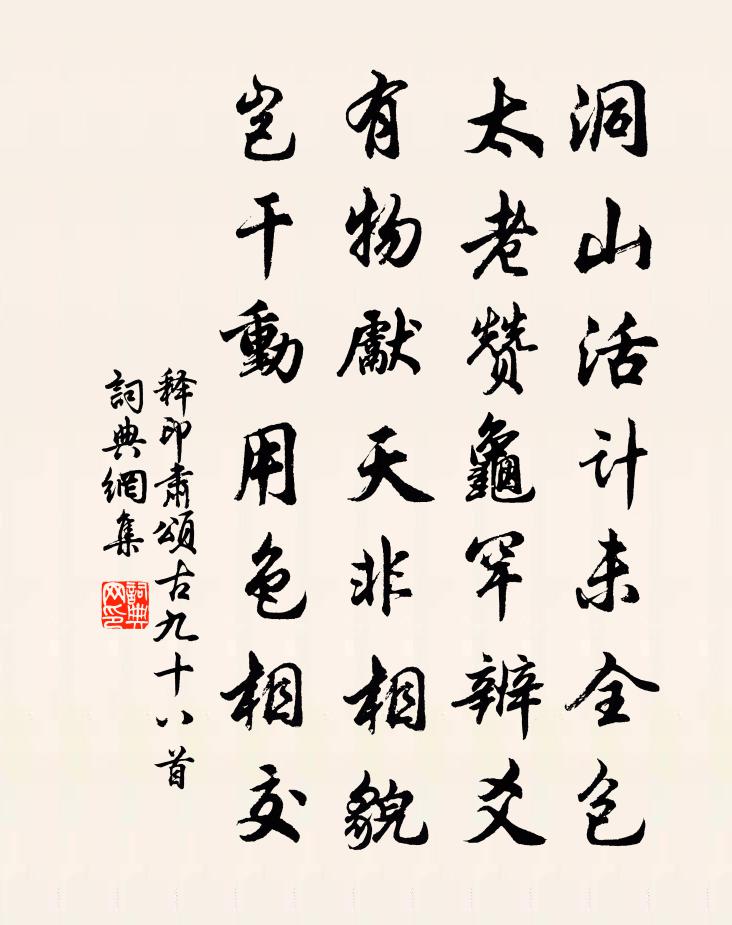 洞山活计未全包
太老赞龜罕辨爻
有物獻天非相貌
岂干動用色相交
释印肅頌古九十八首
詞典網集
詞典网印